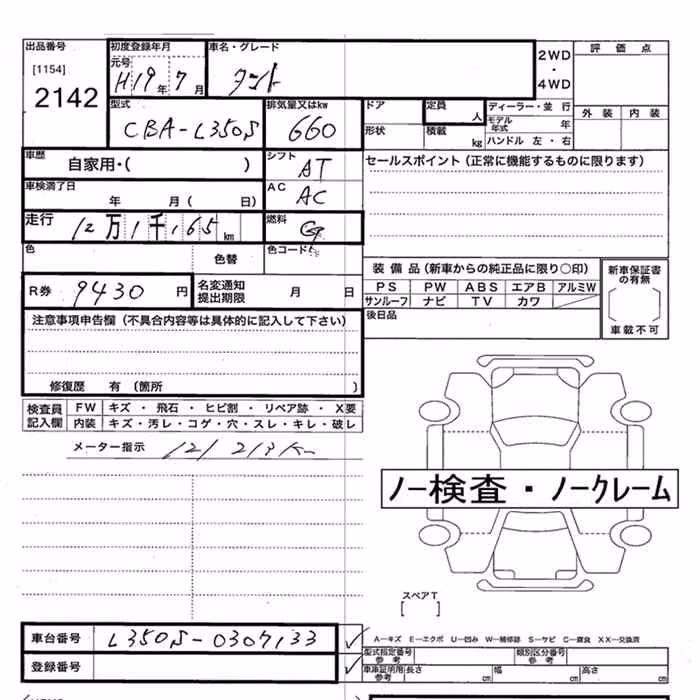 出品番号 初度登録年月 車名・グレード 2WD・4WD 評価点
[1154] 元号
2142 H19年7月 タント
外装 内装
型式 排気量又はkw ドア 定員 人 ディーラー・並行
CBA-L350S 660 形状 積載 kg モデル年式 年
ハンドル 左・右
車歴 自家用・( ) シフト AT セールスポイント(正常に機能するものに限ります)
車検満了日 年 月( 日) AC AC
走行 12万1千165km 燃料
色 色替 色コード
装備品(新車からの純正品に限り○印) 新車保証書の有無
R券 9430円 名変通知提出期限 月 日 PS PW ABS エアB アルミW
サンルーフ ナビ TV カワ
注意事項申告欄(不具合内容等は具体的に記入して下さい) 後日品 車載不可
修復歴 有〔箇所 〕
検査員記入欄 FW キズ・飛石・ヒビ割・リペア跡・X要
内装 キズ・汚レ・コゲ・穴・スレ・キレ・破レ
メーター指示 121213K
ノー検査・ノークレーム
スペアT
[ ]
車台番号 L350S-0307133 ✓ A-キズ E-エクボ U-凹み W-補修跡 S-サビ C-腐食 XX-交換済
型式指定番号参考 類別区分番号参考
登録番号 ✓ 車庫証明用参考 長さ cm 幅 cm 高さ cm